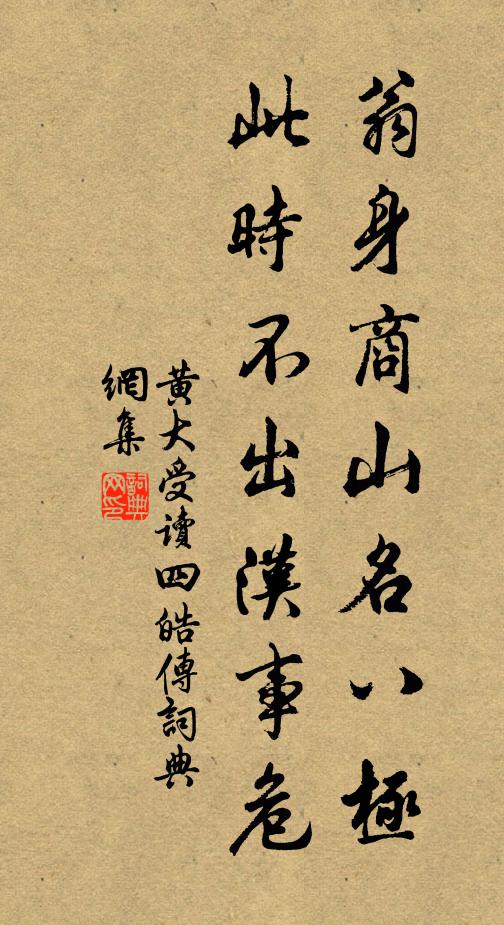 翁身商山名八極
此時不出漢事危
黃大受讀四皓傳詞典
網集
詞典
网印